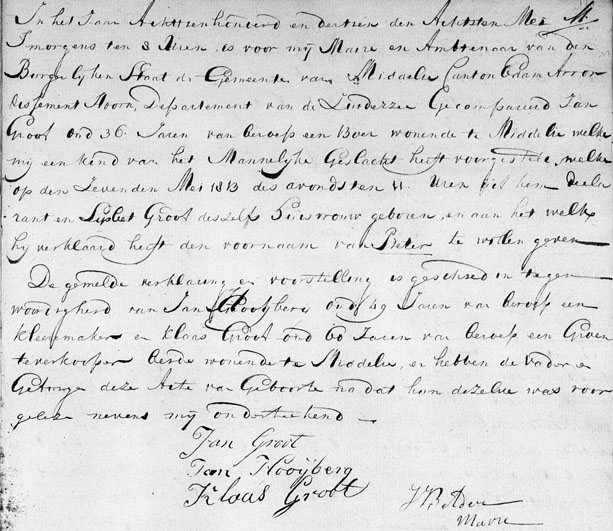 In het Jaar Achttienhonderd en dertien den Achtsten Mei
Smorgens ten 8 Uren, is voor mij Maire en Ambtenaar van den
Burgerlyken Staat der Gemeente van Middelie Canton Edam Arron
dissement Hoorn, Departement van de Zuiderzee Gecompareerd Jan
Groot oud 36 Jaren van beroep een Boer wonende te Middelie welke
mij een kind van het Mannelyke Geslacht heeft voorgesteld, welke
op den Zevenden Mei 1813 des avonds ten 11 Uren uit hem decla
rant en Lysbet Groot deszelfs Huisvrouw geboren, en aan het welk
hij verklaard heeft den voornaam van Pieter te willen geven
De gemelde verklaring en voorstelling is geschied in tegen
woordigheid van Jan Hooyberg oud 49 Jaren van beroep een
Kleermaker en Klaas Groot oud 60 Jaren van beroep een Groen
teverkooper beide wonende te Middelie, en hebben de vader en
Getuigen deze Acte van Geboorte na dat hun dezelve was voor
gelezen nevens mij onderteekend
Jan Groot
Jan Hooijberg
Klaas Groot
Maire